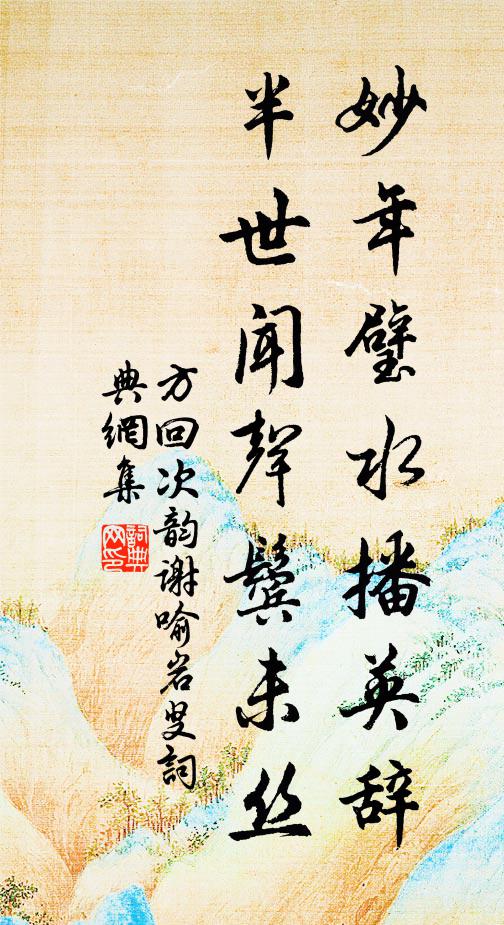 妙年璧水播英辞
半世闻声鬓未丝
方回次韵谢喻岩叟词
典網集